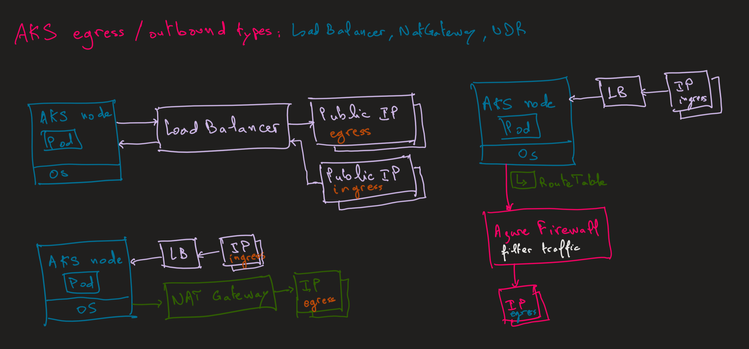 AKS egress / outbound types: Load Balancer, NatGateway, UDR
AKS node
Pod
OS
Load Balancer
Public IP
egress
Public IP
ingress
AKS node
Pod
OS
LB
IP
ingress
NAT Gateway
IP
egress
AKS node
Pod
OS
LB
IP
ingress
RouteTable
Azure Firewall
filter traffic
IP
egress